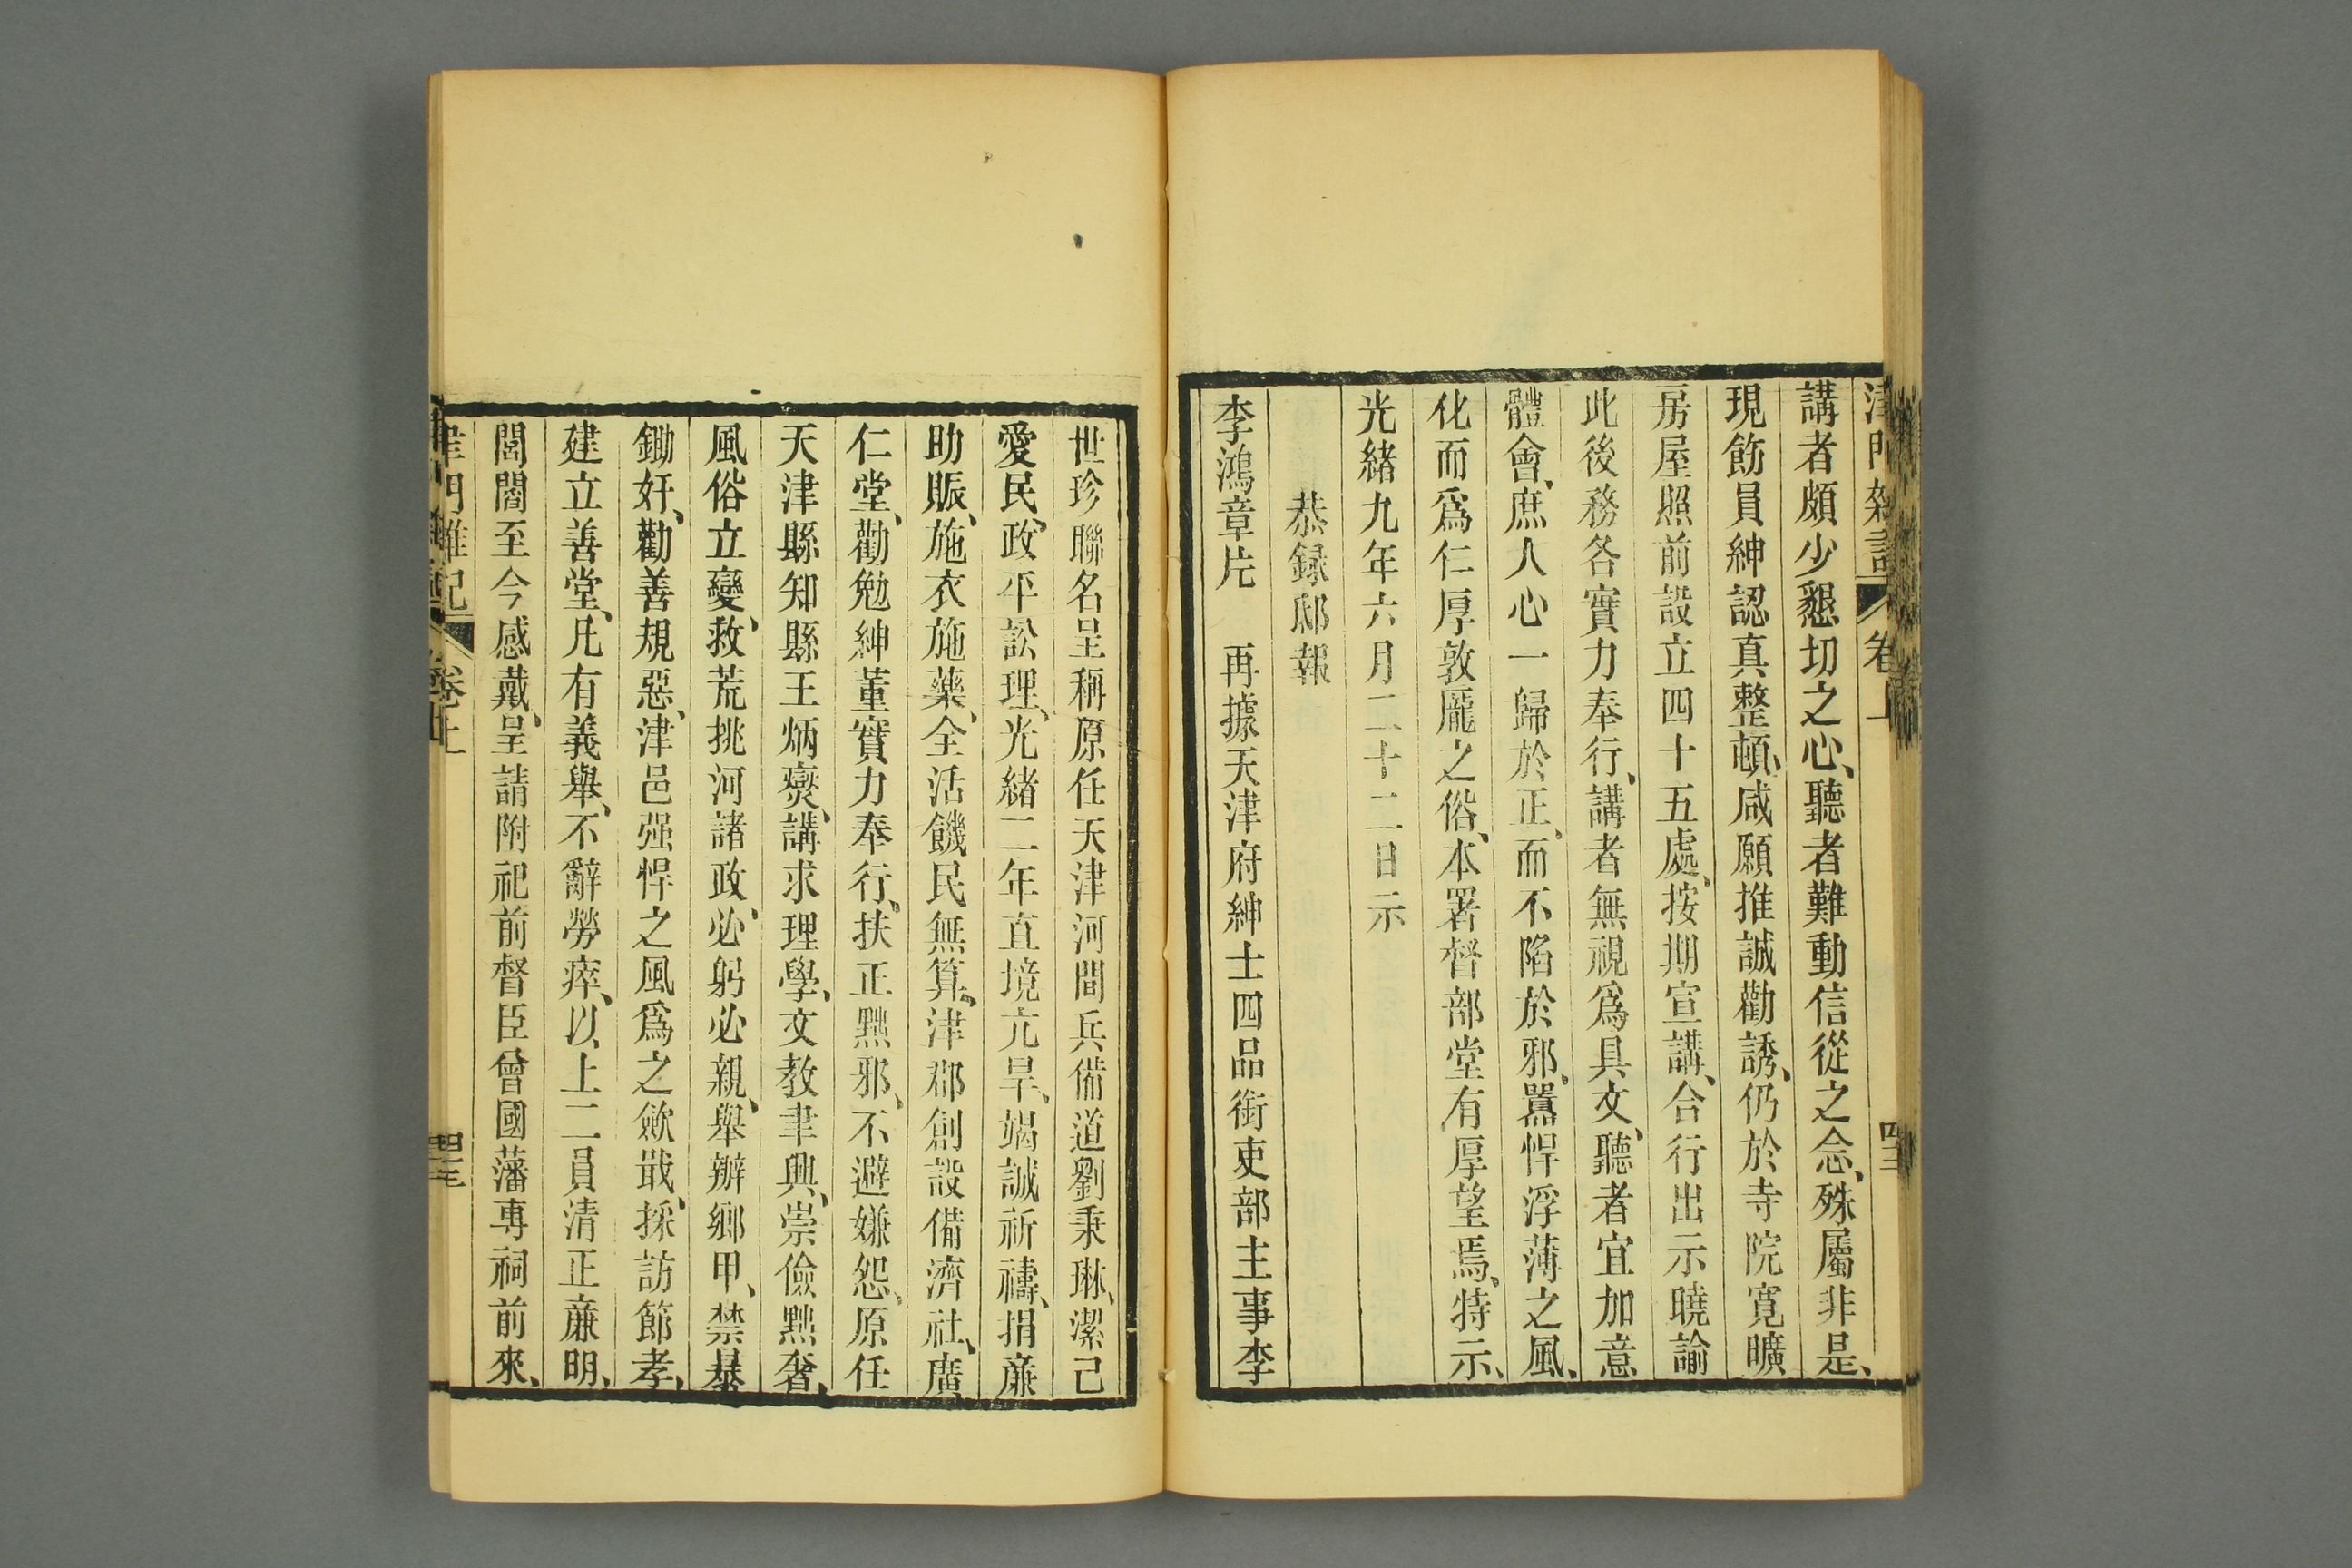 津門雜記 卷上
講者頗少懇切之心、聽者難動信從之念、殊屬非是、
現飭員紳認真整頓、咸願推誠勸誘、仍於寺院寬曠
房屋照前設立四十五處、按期宣講、合行出示曉諭
此後務各實力奉行、講者無視爲具文、聽者宜加意
體會、庶人心一歸於正、而不陷於邪、囂悍浮薄之風、
化而爲仁厚敦龐之俗、本署督部堂有厚望焉、特示、
光緒九年六月二十二日示
恭録邸報
李鴻章片　再據天津府紳士四品銜吏部主事李
世珍聯名呈稱原任天津河間兵備道劉秉琳、潔己
愛民、政平訟理、光緒二年直境亢旱、竭誠祈禱、捐廉
助賑、施衣施藥、全活饑民無算、津郡創設備濟社、廣
仁堂、勸勉紳董實力奉行、扶正黜邪、不避嫌怨、原任
天津縣知縣王炳燮、講求理學、文教聿興、崇儉黜奢、
風俗立變、救荒挑河諸政、必躬必親、舉辦鄉甲、禁暴
鋤奸、勸善規惡、津邑强悍之風爲之歛戢、採訪節孝、
建立善堂、凡有義舉、不辭勞瘁、以上二員清正廉明、
閭閻至今感戴、呈請附祀前督臣曾國藩專祠前來、
津門雜記 卷上